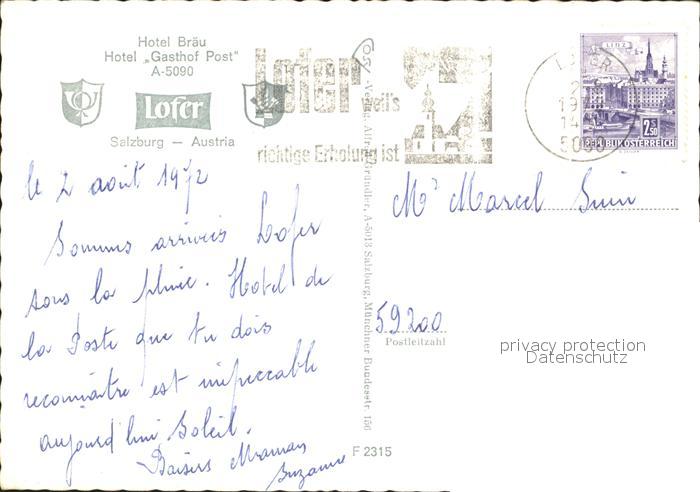 Hotel Bräu
Hotel „Gasthof Post"
A-5090
Lofer
Salzburg — Austria
Lofer weil's
richtige Erholung ist
LINZ
2.50
REPUBLIK ÖSTERREICH
le 2 août 1972
Sommes arrivées Lofer
sous la pluie. Hotel de
la Poste que tu dois
reconnaître est impeccable
aujourd'hui Soleil.
Baisers Maman
Suzanne
Verlag: Alfred Gründler, A-5013 Salzburg, Münchner Bundesstr. 156
Mr Marcel
59200
Postleitzahl
privacy protection
Datenschutz
F 2315